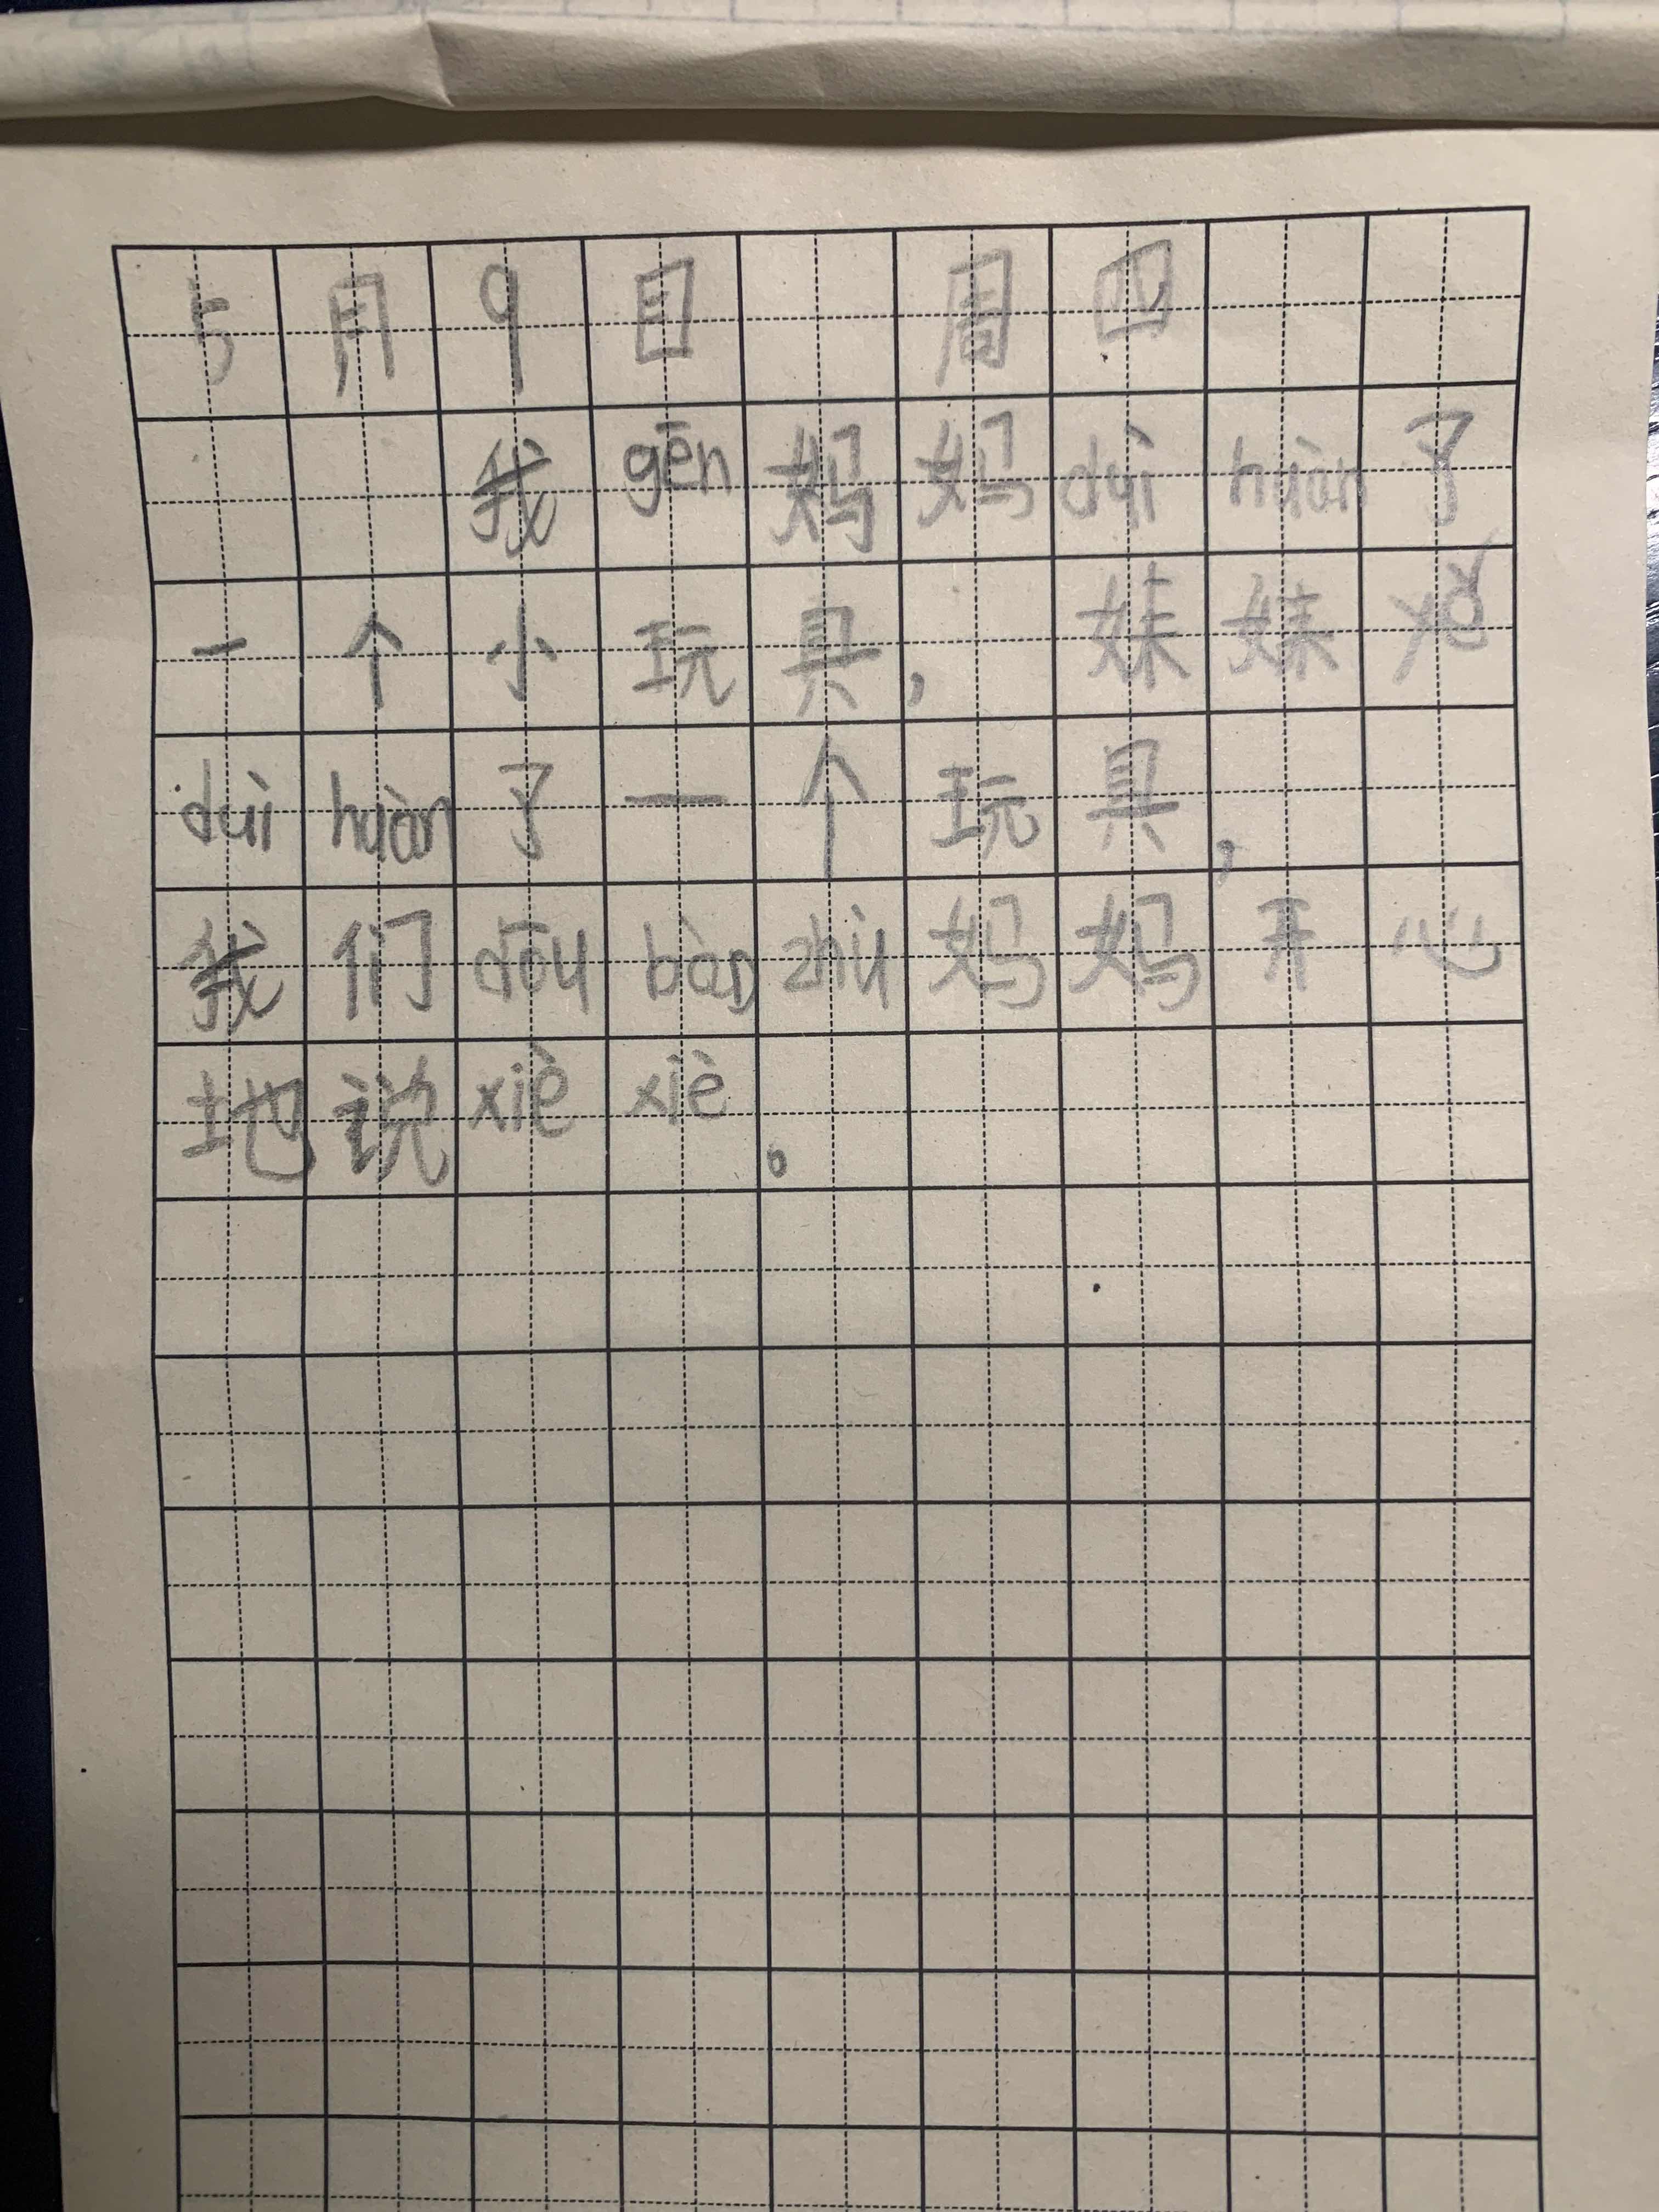 5月9目 周四
我gēn妈妈duì huàn了
一个小玩具，妹妹yě
duì huàn了一个玩具，
我们dōu zhù妈妈开心
地说xiè xiè。